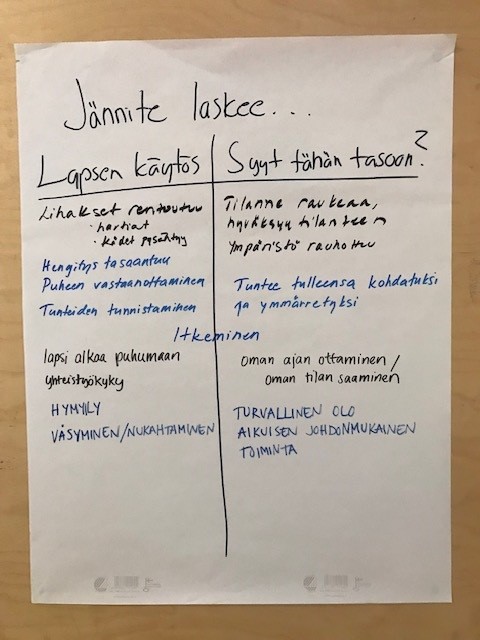 Jännite laskee...
Lapsen käytös
Syyt tähän tasoon?
Lihakset rentoutuu
· hartiat
· kädet pysähtyy
Hengitys tasaantuu
Puheen vastaanottaminen
Tunteiden tunnistaminen
Itkeminen
lapsi alkaa puhumaan
yhteistyökyky
HYMYILY
VÄSYMINEN/NUKAHTAMINEN
Tilanne raukeaa,
hyväksyy tilanteen
Ympäristö rauhottuu
Tuntee tulleensa kohdatuksi
ja ymmärretyksi
oman ajan ottaminen /
oman tilan saaminen
TURVALLINEN OLO
AIKUISEN JOHDONMUKAINEN
TOIMINTA